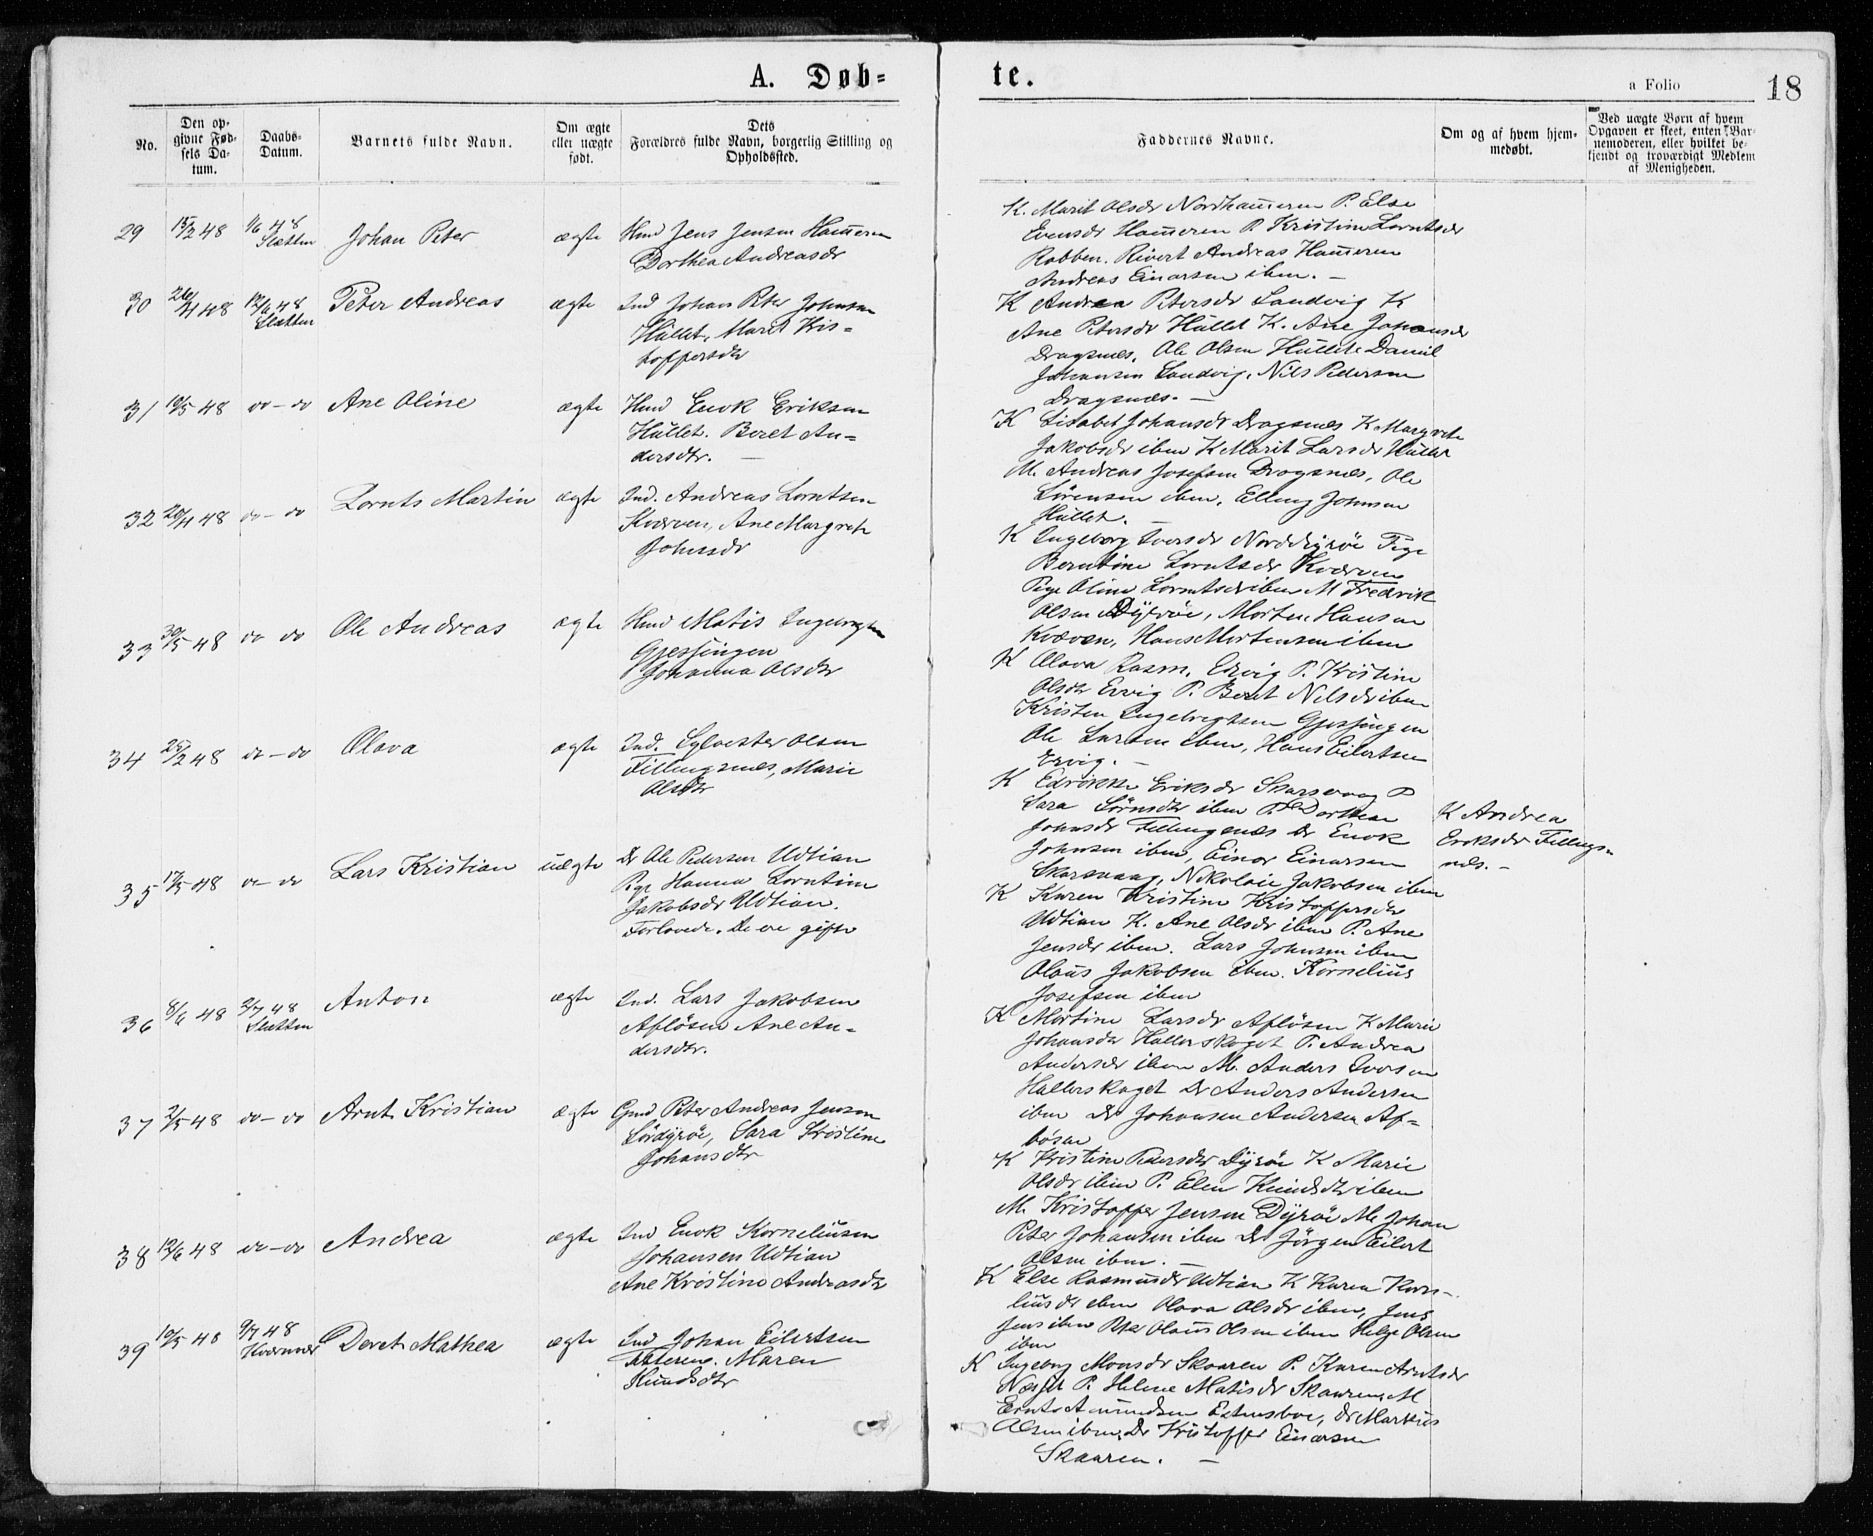 A. Døb-
te.
a Folio
18
No.
Den op-
givne Fød-
sels Da-
tum.
Daabs-
Datum.
Barnets fulde Navn.
Om ægte
eller uægte
født.
Dets
Forældres fulde Navn, borgerlig Stilling og
Opholdssted.
Faddernes Navne.
Om og af hvem hjem-
medøbt.
Ved uægte Børn af hvem
Opgaven er skeet, enten Bar-
nemoderen, eller hvilket be-
kjendt og troværdigt Medlem
af Menigheden.
29 15/2 48 1/6 48
Sletten
Johan Peter
ægte
Hmd Jens Jensen Hammeren
Dorthea Andreasdr
K. Marit Olsdr Nordhammeren P. Else
Evensdr Hammeren P. Kristine Lorntsdr
Robben. Sivert Andreas Hammeren
Andreas Einarsen ibm. —
30 26/4 48 12/6 48
Sletten
Peter Andreas
ægte
Ind Johan Peter Johnsen
Hullet, Marit Kris-
toffersdtr
K Andrea Petersdr Sandvig K
Ane Petersdr Hullet K. Ane Johansdr
Dragsnes, Ole Olsen Hullet Daniel
Johansen Sandvig, Nils Pedersen
Dragsnes. —
31 10/5 48 do - do
Ane Oline
ægte
Hmd Enok Eriksen
Hullet. Beret An-
dersdtr. —
K Lisabet Johansdr Dragsnes K Margrete
Jakobsdr ibm K Marit Larsdr Hullet
M. Andreas Josefsen Dragsnes, Ole
Sørensen ibm, Elling Johnsen
Hullet. —
32 20/4 48 do - do
Lornts Martin
ægte
Ind. Andreas Lorntsen
Kværven, Ane Margrete
Johnsdr
K Ingeborg Iversdr Norddyrøe Pige
Berntine Lorntsdr Kværven
Pige Oline Lorntsdr ibm M Fredrik
Olsen Dyrøe, Morten Hansen
Kværven, Hans Mortensen ibm
33 30/5 48 do do
Ole Andreas
ægte
Hmd Matis Ingebrigtsen
Gjessingen
Johanna Olsdtr
K Olava Rasm. Ervig P. Kristine
Olsdtr Ervig P. Beret Nilsdr ibm
Kristen Ingebrigtsen Gjessingen
Ole Larsen ibm, Hans Eilertsen
Ervig. —
34 25/2 48 do - do
Olava
ægte
Ind. Sylvester Olsen
Fillingsnes, Marie
Olsdtr
K Edrikke Eriksdr Skarsvaag P
Sara Sørnsdtr ibm P. Dorthea
Johnsdr Fillingsnes Dr Enok
Johnsen ibm, Einar Einarsen
Skarsvaag, Nikolai Jakobsen ibm
K Andrea
Eriksdr Fillings-
nes. —
35 17/5 48 do - do
Lars Kristian
uægte
Dr Ole Pedersen Udtian
Pige Hanna Lorntine
Jakobsdr Udtian.
Forlovede. De ere gifte
K Karen Kristine Kristoffersdtr
Udtian K. Ane Olsdr ibm P. Ane
Jensdr ibm. Lars Johnsen ibm
Olaus Jakobsen ibm. Kornelius
Josefsen ibm
36 8/6 48 2/7 48
Sletten
Anton
ægte
Ind. Lars Jakobsen
Afløsen Ane An-
dersdtr.
K Martine Larsdr Afløsen K Marie
Johansdr Hallerskaget P. Andrea
Andersdr ibm M. Anders Iversen
Hallerskaget Dr Anders Andersen
ibm Dr Johansen Andersen Af-
løsen
37 2/5 48 do - do
Arnt Kristian
ægte
Gmd Peter Andreas Jensen
Sørdyrøe, Sara Kristine
Johansdtr
K Kristine Pedersdtr Dyrøe K Marie
Olsdr ibm P. Elen Knudsdtr ibm
M. Kristoffer Jensen Dyrøe M. Johan
Peter Johansen ibm Dr Jørgen Eilert
Olsen ibm. —
38 12/6 48 do - do
Andrea
ægte
Ind Enok Korneliusen
Johansen Udtian
Ane Kristine Andreasdtr
K Else Rasmusdr Udtian K Karen Korne-
liusdr ibm Olava Olsdr ibm, Jens
Jens ibm Peter Olaus Olsen ibm Helge Olsen
ibm
39 10/5 48 9/7 48
Kvernnes
Beret Mathea
ægte
Ind Johan Eilertsen
Maren
Knudsdtr
K Ingeborg Monsdr Skaaren P. Karen Arntsdr
Nesset P. Helene Matisdr Skaaren, M
Ernts Amundsen Dr Markus
Olsen ibm, Dr Kristoffer Einarsen
Skaaren. —